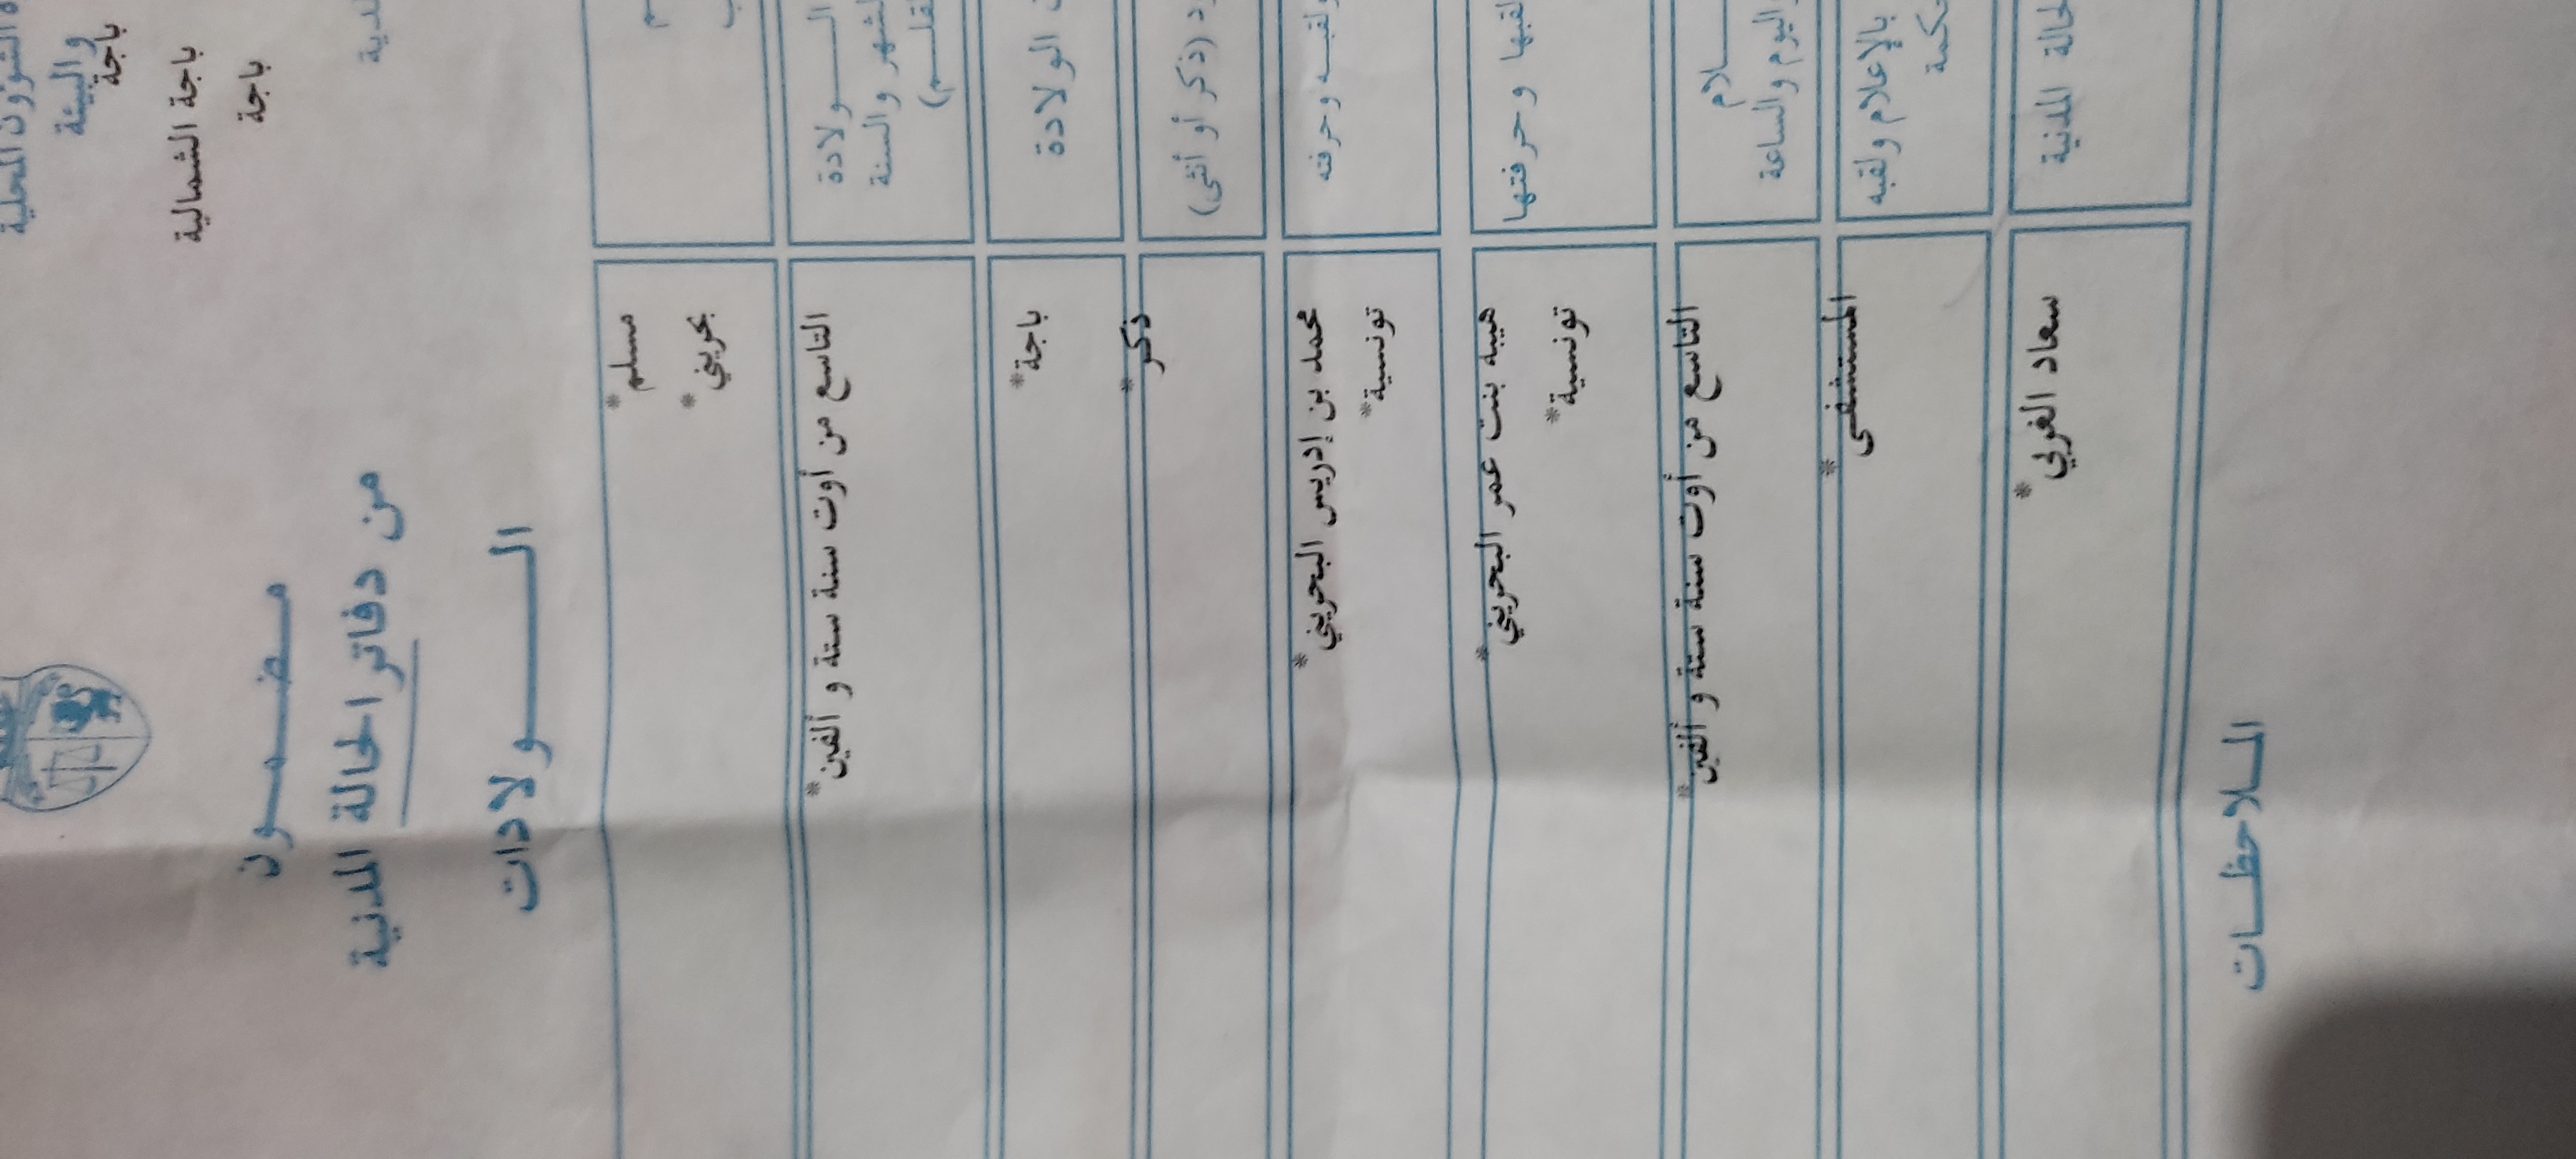 الشؤون المحلية
والبيئة
باجة
باجة الشمالية
باجة
مضمون
من دفاتر الحالة المدنية
الولادات
مسلم*
بحريني*
الولادة
الشهر والسنة
التاسع من أوت سنة ستة و ألفين*
الولادة
باجة*
(ذكر أو أنثى)
ذكر*
ولقبه وحرفته
محمد بن إدريس البحريني*
تونسية*
لقبها وحرفتها
هيبه بنت عمر البحريني*
تونسية*
واليوم والساعة
التاسع من أوت سنة ستة و ألفين*
بالإعلام ولقبه
المستشفى*
الحالة المدنية
سعاد الغربي*
الملاحظات